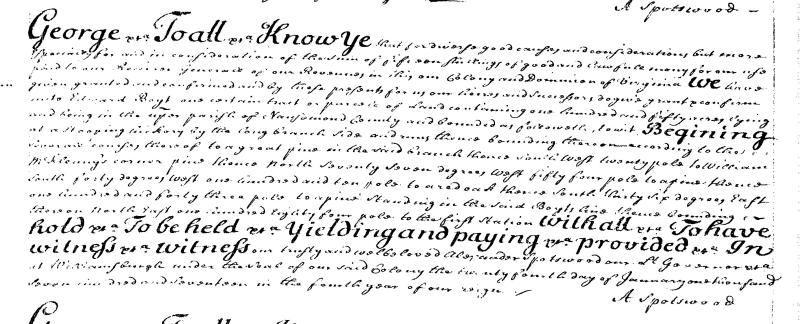 A Spotswood
George &ca To all &ca Know Ye that for diverse good causes and considerations but more
Especially for and in consideration of the sum of fifteen shillings of good and Lawfull money for our use
paid to our Receiver General of our Revenues in this our Colony and Dominion of Virginia We have
given granted and confirmed and by these presents for us our heirs and Successors do give grant & confirm
unto Edward Boyt one certain tract or parcel of Land containing one hundred and fifty acres lying
and being in the uper parish of Nansemond County and bounded as followeth, to wit Begining
at a stooping hickory by the long branch side and runs thence bounding thereon according to the
thereof to a great pine in the said branch thence South West twenty pole to William
McKlenny's corner pine thence North Seventy Seven degrees West fifty four pole to a pine thence
South forty degrees west one hundred and ten pole to a red oak thence South thirty six degrees East
one hundred and forty three pole to a pine Standing in the said Boyts line thence bounding
thereon North East one hundred Eighty four pole to the first Station with all &ca To have
hold &ca To be held &ca Yielding and paying &ca provided &ca In
witness &ca witness our trusty and welbeloved Alexander Spotswood our Lt Governor &ca
at Williamsburgh under the seal of our said Colony the twenty fourth day of January one thousand
seven hundred and seventeen in the fourth year of our reign
A Spotswood